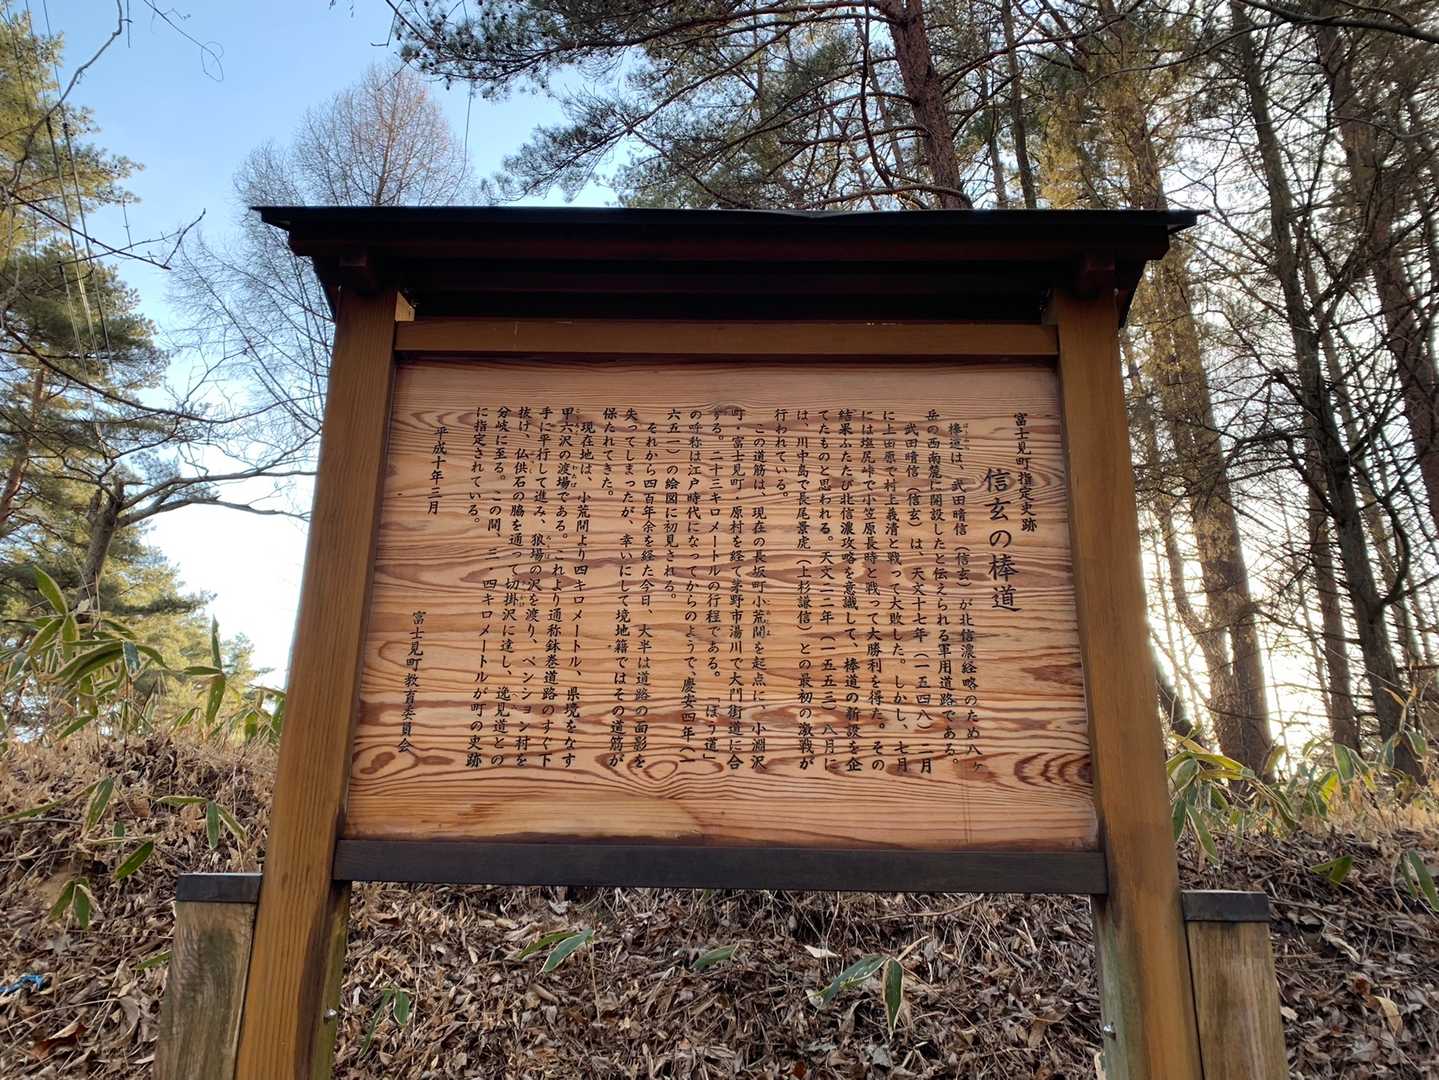 富士見町指定史跡
信玄の棒道
棒道は、武田晴信(信玄)が北信濃経略のため八ヶ
岳の西南麓に開設したと伝えられる軍用道路である。
武田晴信(信玄)は、天文十七年(一五四八)二月
に上田原で村上義清と戦って大敗した。しかし、七月
には塩尻峠で小笠原長時と戦って大勝利を得た。その
結果ふたたび北信濃攻略を意識して、棒道の新設を企
てたものと思われる。天文二二年(一五五三)八月に
は、川中島で長尾景虎(上杉謙信)との最初の激戦が
行われている。
この道筋は、現在の長坂町小荒間を起点に、小淵沢
町・富士見町・原村を経て茅野市湯川で大門街道に合
する。二十三キロメートルの行程である。「ぼう道」
の呼称は江戸時代になってからのようで、慶安四年(一
六五一)の絵図に初見される。
それから四百年余を経た今日、大半は道路の面影を
失ってしまったが、幸いにして境地籍ではその道筋が
保たれてきた。
現在地は、小荒間より四キロメートル、県境をなす
甲六沢の渡場である。これより通称鉢巻道路のすぐ下
手に平行して進み、狼場の沢を渡り、ペンション村を
抜け、仏供石の脇を通って切掛沢に達し、逸見道との
分岐に至る。この間、三・四キロメートルが町の史跡
に指定されている。
平成十年三月
富士見町教育委員会